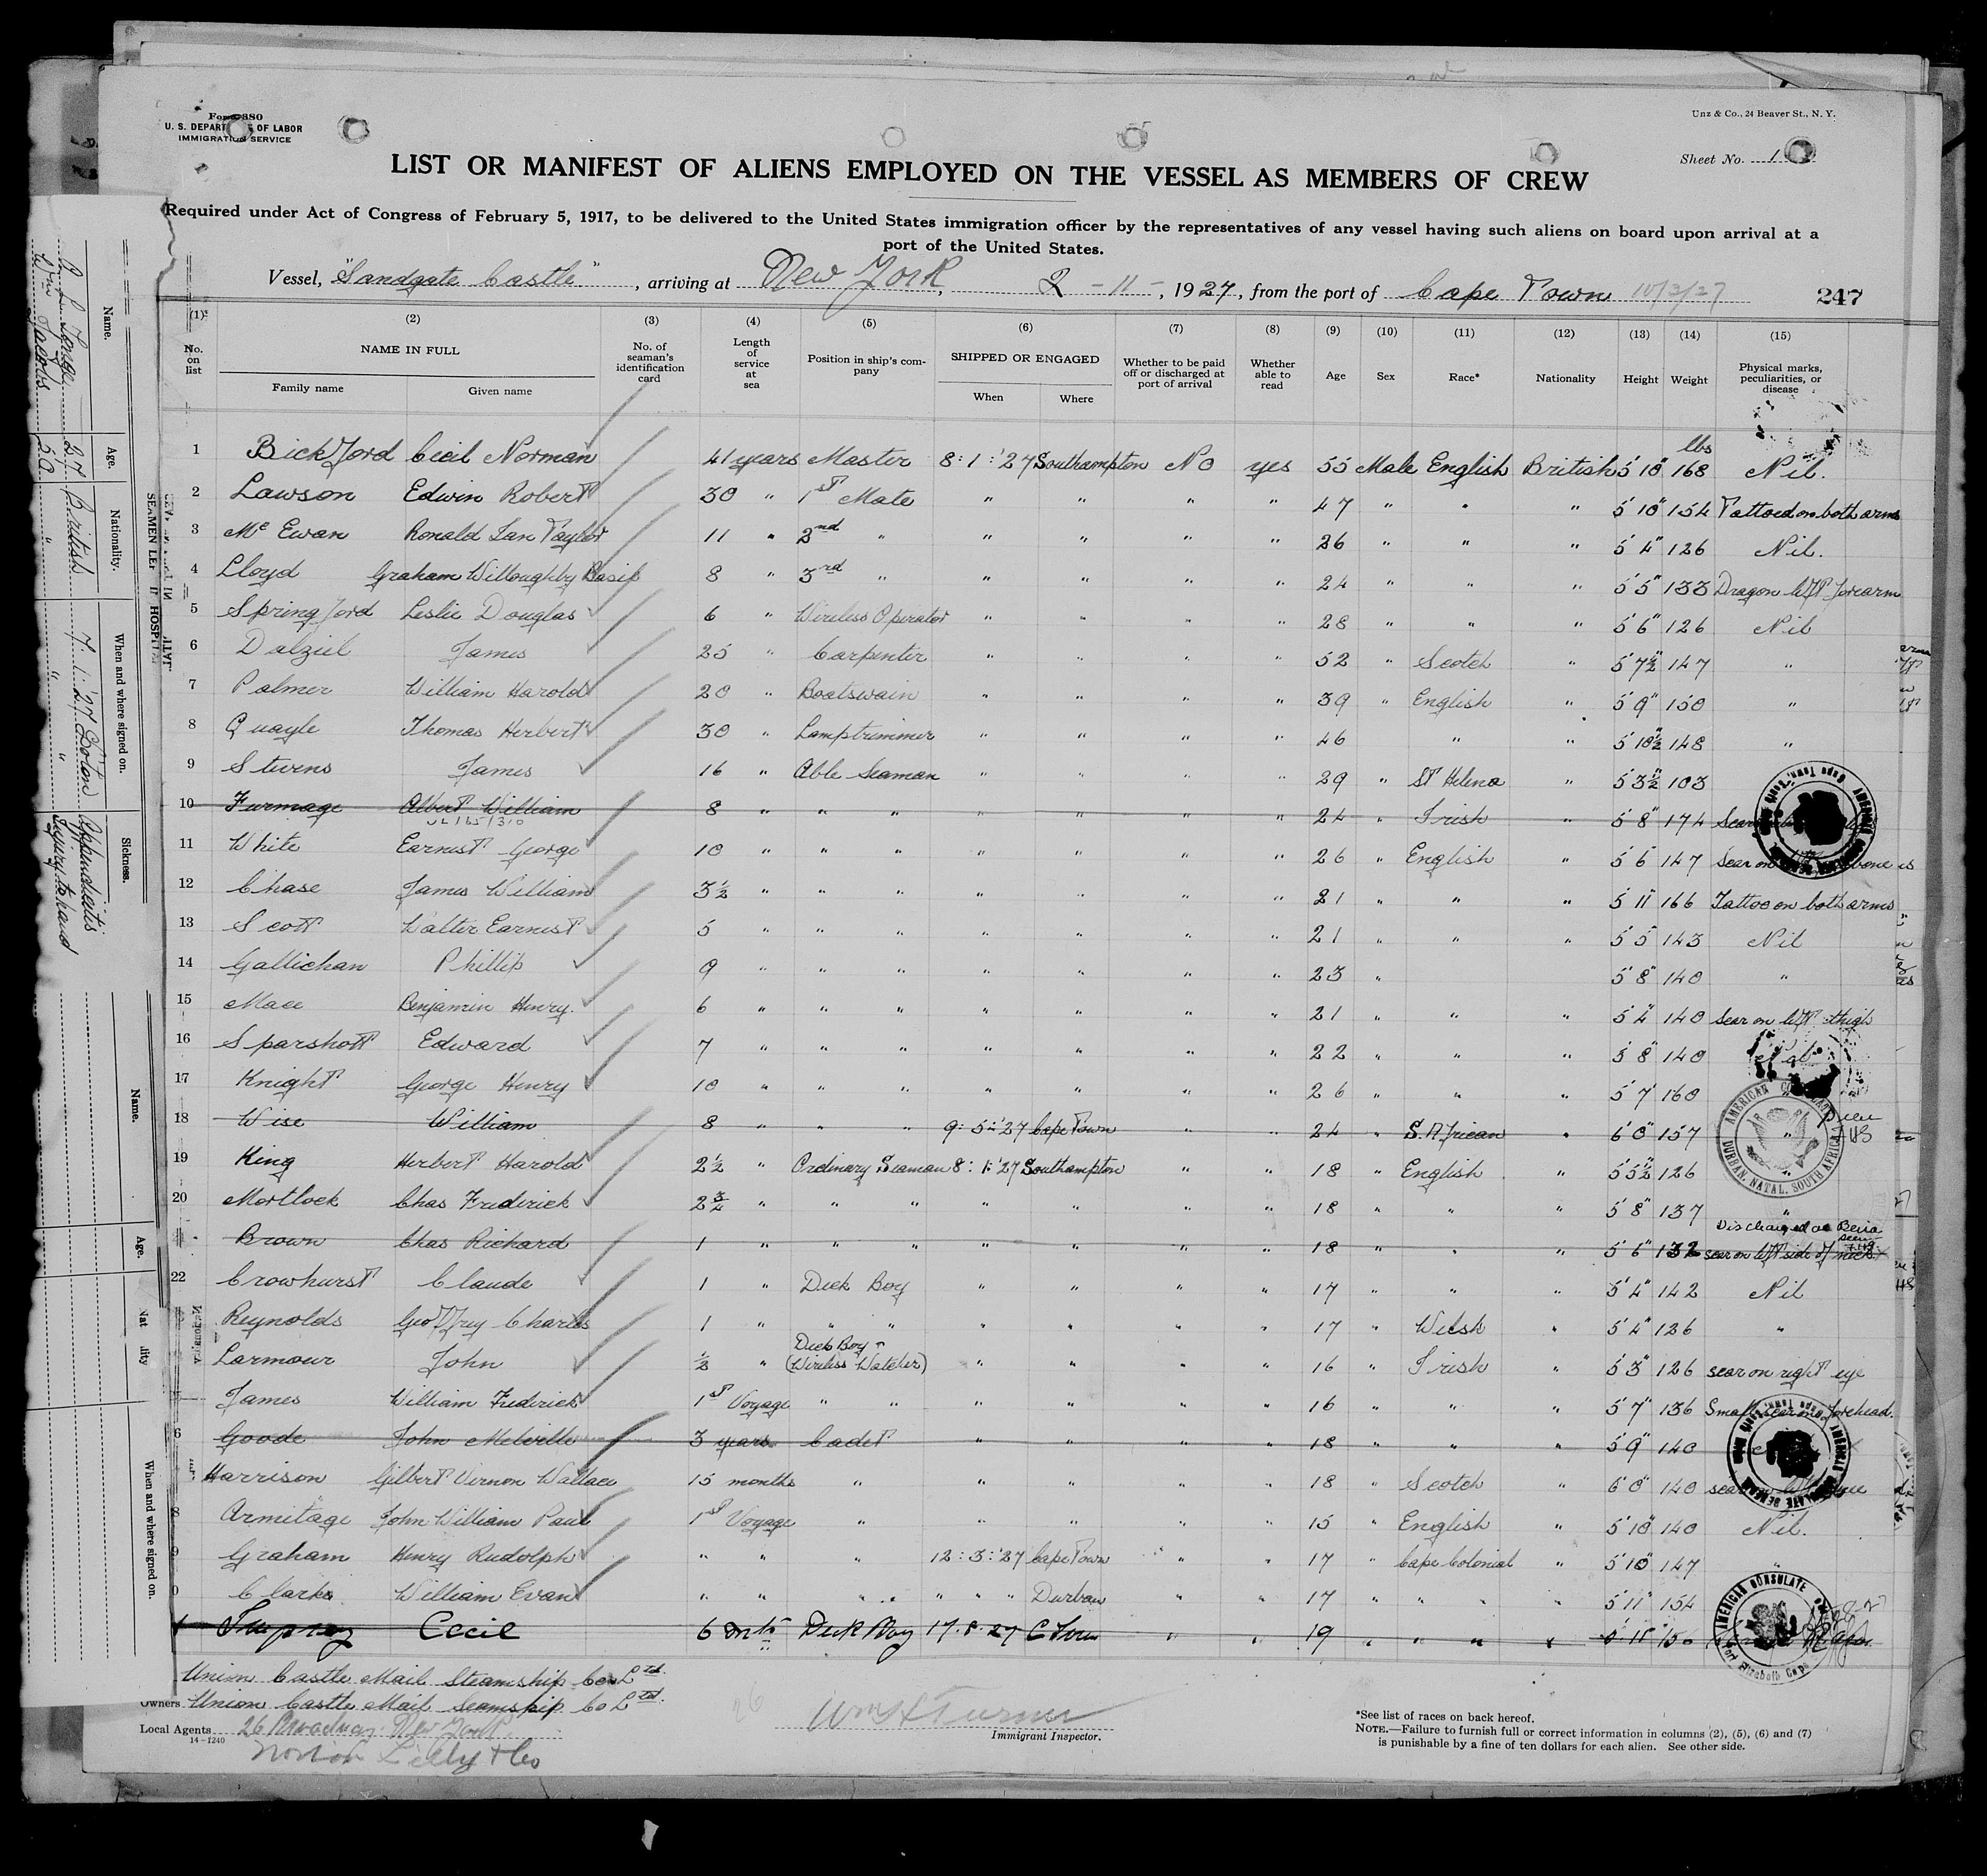 Form 680
U. S. DEPARTMENT OF LABOR
IMMIGRATION SERVICE
Unz & Co., 24 Beaver St., N. Y.
Sheet No. 1
LIST OR MANIFEST OF ALIENS EMPLOYED ON THE VESSEL AS MEMBERS OF CREW
Required under Act of Congress of February 5, 1917, to be delivered to the United States immigration officer by the representatives of any vessel having such aliens on board upon arrival at a
port of the United States.
Vessel, "Sandgate Castle", arriving at New York, 2 - 11 -, 1927, from the port of Cape Town 10/3/27
247
(1) (2) (3) (4) (5) (6) (7) (8) (9) (10) (11) (12) (13) (14) (15)
No. on list NAME IN FULL Family name Given name No. of seaman's identification card Length of service at sea Position in ship's company SHIPPED OR ENGAGED When Where Whether to be paid off or discharged at port of arrival Whether able to read Age Sex Race* Nationality Height Weight Physical marks, peculiarities, or disease
lbs
1 Bickford Cecil Norman 41 years Master 8:1:'27 Southampton No yes 55 Male English British 5'10" 168 Nil.
2 Lawson Edwin Robert 30 " 1st Mate " " " " 47 " " " 5'10" 154 Tattoed on both arms
3 Mc Ewan Ronald Ian Taylor 11 " 2nd " " " " " 26 " " " 5'4" 126 Nil.
4 Lloyd Graham Willoughby Basil 8 " 3rd " " " " " 24 " " " 5'5" 133 Dragon left forearm
5 Springford Leslie Douglas 6 " Wireless Operator " " " " 28 " " " 5'6" 126 Nil
6 Dalziel James 25 " Carpenter " " " " 52 " Scotch " 5'7½" 147 "
7 Palmer William Harold 20 " Boatswain " " " " 39 " English " 5'9" 150 "
8 Quayle Thomas Herbert 30 " Lamptrimmer " " " " 46 " " " 5'10½" 148 "
9 Stevens James 16 " Able Seaman " " " " 29 " St Helena " 5'3½" 103
10 Furmage Albert William 8 " " " " " " " 24 " Irish " 5'8" 174 Scar
11 White Earnest George 10 " " " " " " " 26 " English " 5'6" 147 Scar on left
12 Chase James William 3½ " " " " " " " 21 " " " 5'11" 166 Tattoe on both arms
13 Scott Walter Earnest 5 " " " " " " " 21 " " " 5'5" 143 Nil
14 Gallichan Phillip 9 " " " " " " " 23 " 5'8" 140 "
15 Mace Benjamin Henry. 6 " " " " " " " 21 " " " 5'4" 140 Scar on left thigh
16 Sparshott Edward 7 " " " " " " " 22 " " " 5'8" 140
17 Knight George Henry 10 " " " " " " " 26 " " " 5'7" 160
18 Wise William 8 " " " 9:5:'27 Cape Town " " 24 " S. African " 6'0" 157 "
19 King Herbert Harold 2½ " Ordinary Seaman 8:1:'27 Southampton " " 18 " English " 5'5½" 126 "
20 Mortlock Chas Frederick 2¾ " " " " " " " 18 " " " 5'8" 137 "
Discharged at Beira
Brown Chas Richard 1 " " " " " " " 18 " " " 5'6" 132 scar on left side of neck
22 Crowhurst Claude 1 " Deck Boy " " " " 17 " " " 5'4" 142 Nil
Reynolds Geoffrey Charles 1 " " " " " " " 17 " Welsh " 5'4" 126 "
Larmour John ½ " Deck Boy + (Wireless Watcher) " " " " 16 " Irish " 5'3" 126 scar on right eye
James William Frederick 1st Voyage " " " " " " 16 " " " 5'7" 136 Small scar on forehead.
6 Goode John Melville 3 years Cadet " " " " 18 " " " 5'9" 140
Harrison Gilbert Vernon Wallace 15 months " " " " " 18 " Scotch " 6'0" 140 scar
8 Armitage John William Paul 1st Voyage " " " " " 15 " English " 5'10" 140 Nil.
9 Graham Henry Rudolph " " " 12:3:'27 Cape Town " " 17 " Cape Colonial " 5'10" 147 "
0 Clarke William Evan " " " " " " " Durban " " 17 " " " " 5'11" 154
Cecil 6 mts Deck Boy 17.8.27 C Town " " 19 " " " " 5'11" 150
Union Castle Mail Steamship Co Ltd.
Owners Union Castle Mail Seamship Co Ltd.
Local Agents 26 Broadway. New York.
14-1240
Norton Lilly & Co
26
Wm H Turner
Immigrant Inspector.
*See list of races on back hereof.
NOTE.—Failure to furnish full or correct information in columns (2), (5), (6) and (7)
is punishable by a fine of ten dollars for each alien. See other side.
AMERICAN CONSULATE DURBAN, NATAL, SOUTH AFRICA
AMERICAN CONSULATE Port Elizabeth Cape
AMERICAN CONSULATE GENERAL Cape Town
Name. Age. Nationality. When and where signed on. Sickness.
27 British 7.1.'27 Soton Appendicitis
Wm Jacobs 50 " " Injury to hand
SEAMEN LEFT IN HOSPITAL
Name. Age. Nationality When and where signed on.